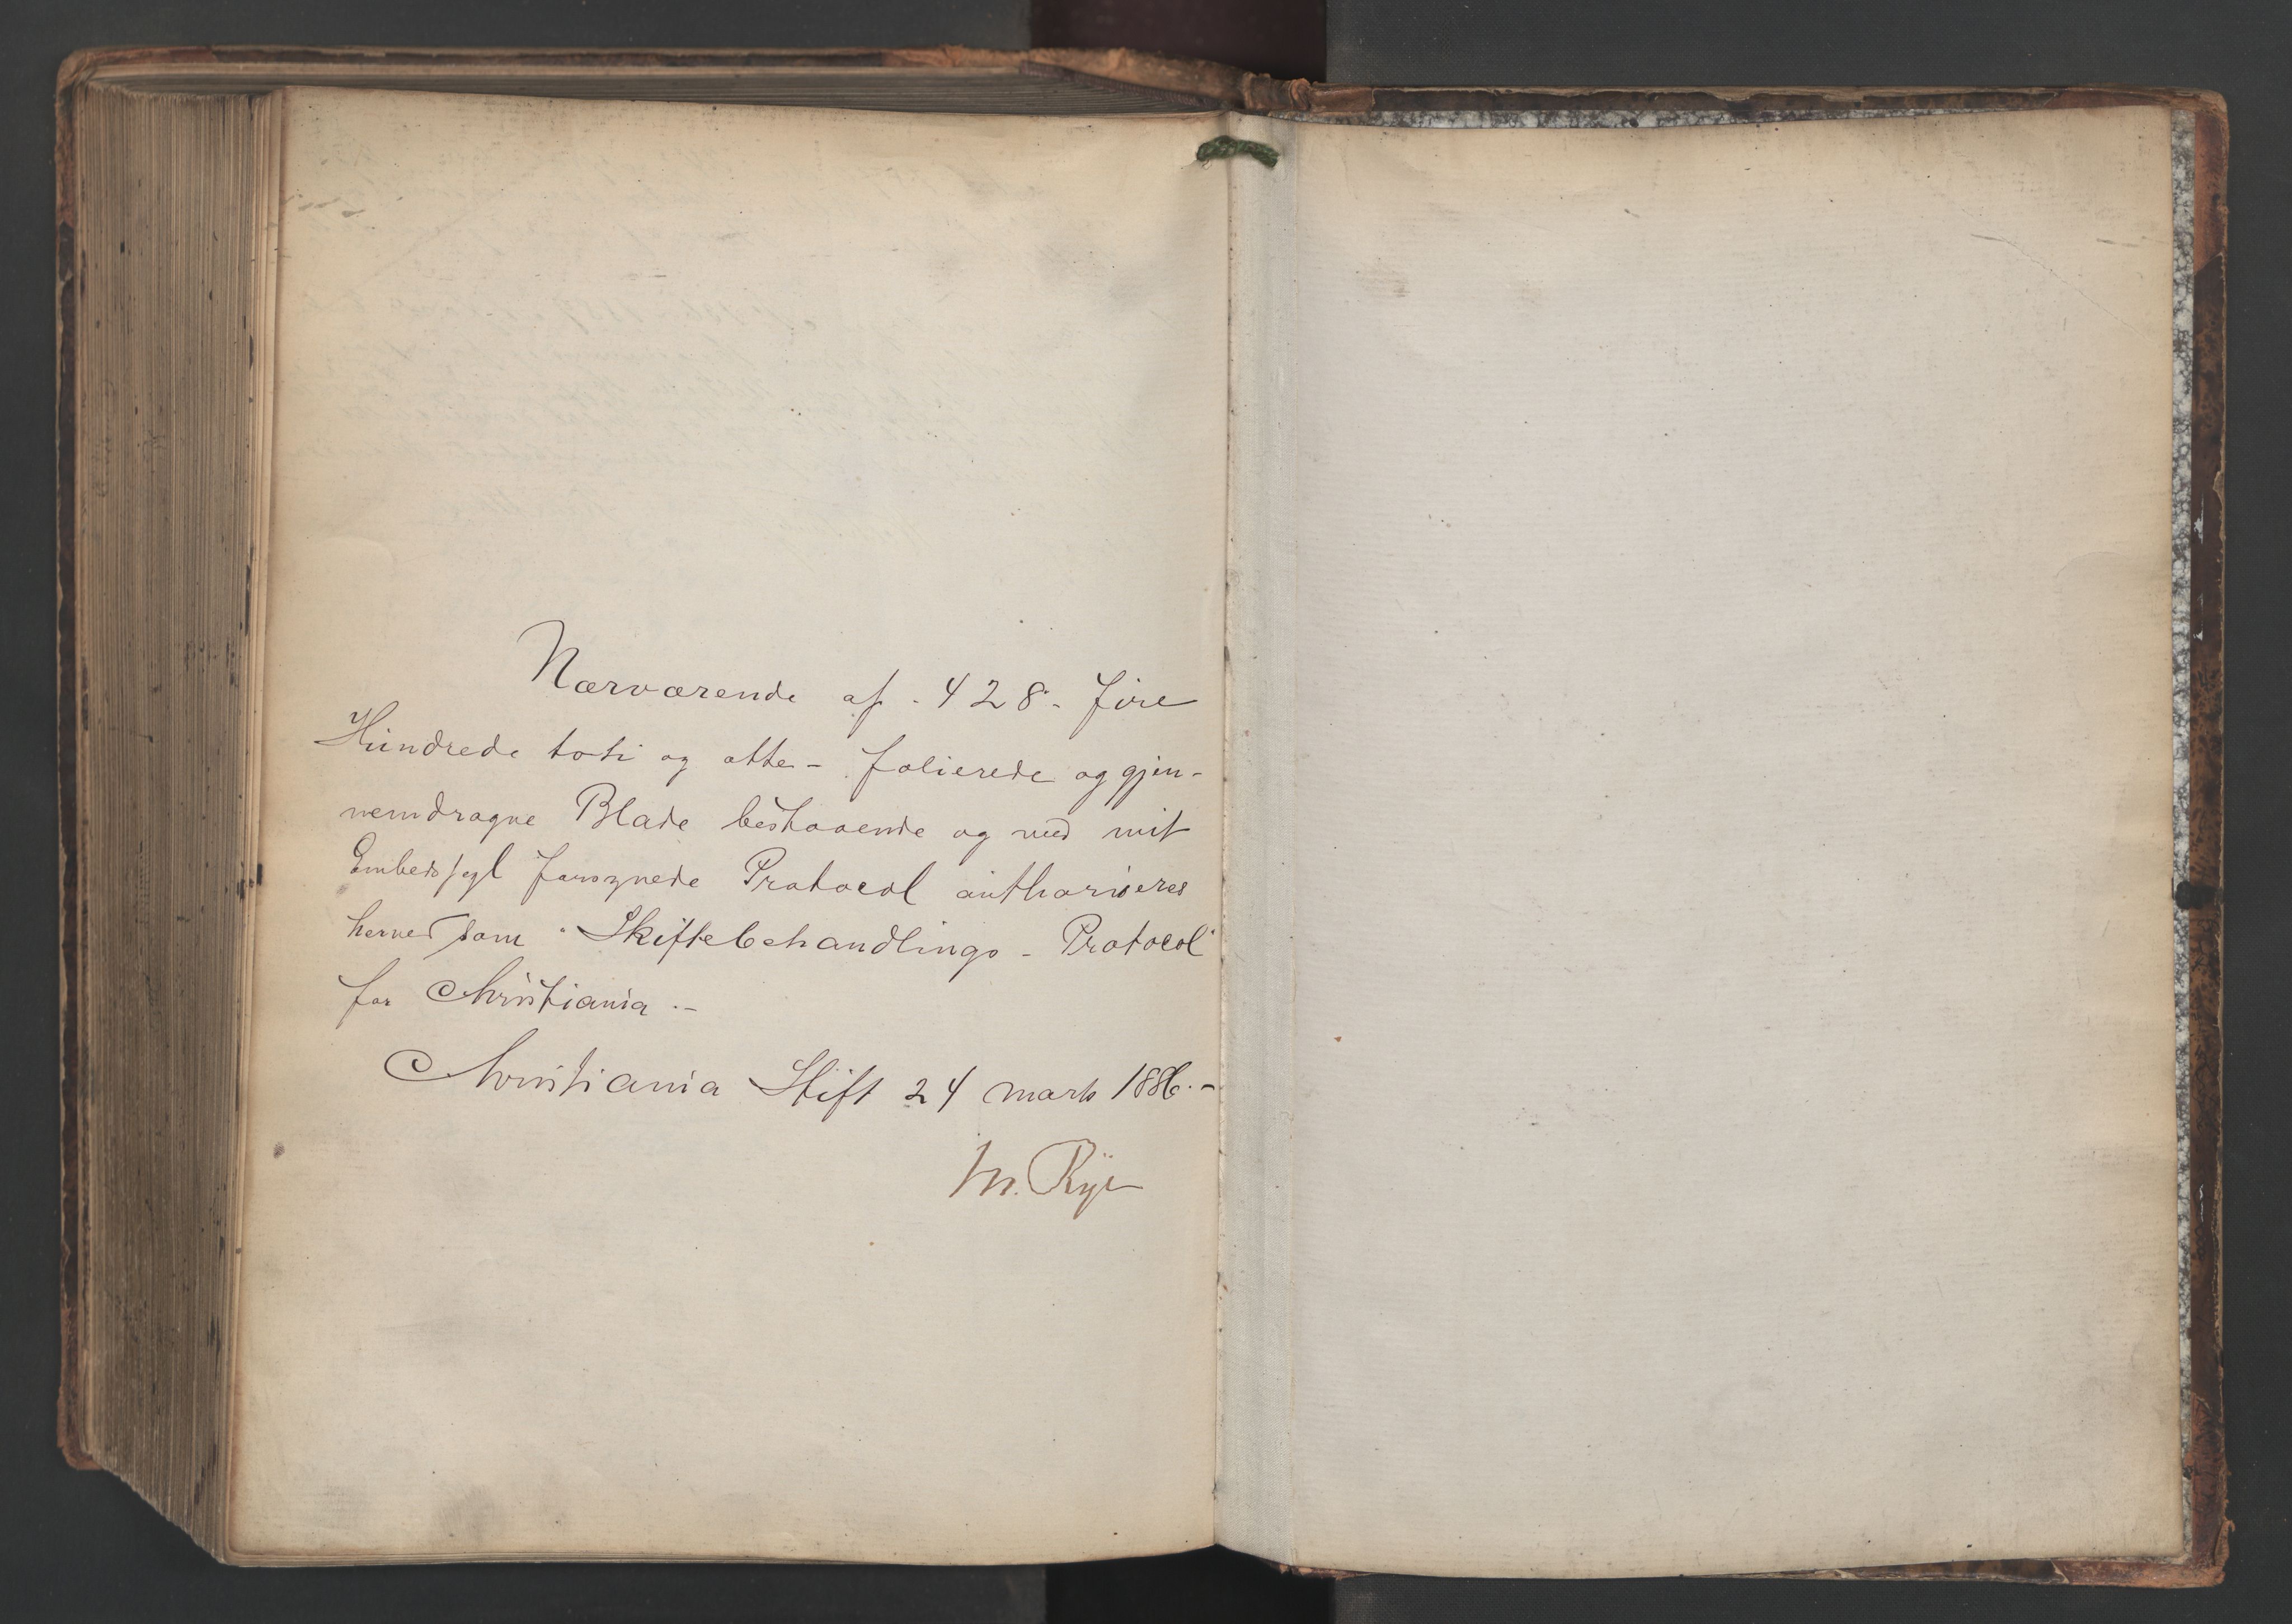 Nærværende af - 428 - fire
Hundrede toti og otte - folierede og gjen-
nemdragne Blade bestaaende og med mit
Embedssegl forsynede Protocol authoriseres
herved som "Skiftebehandlings - Protocol"
for Christiania. -
Christiania Stift 24 Marts 1886. -
M. Rye